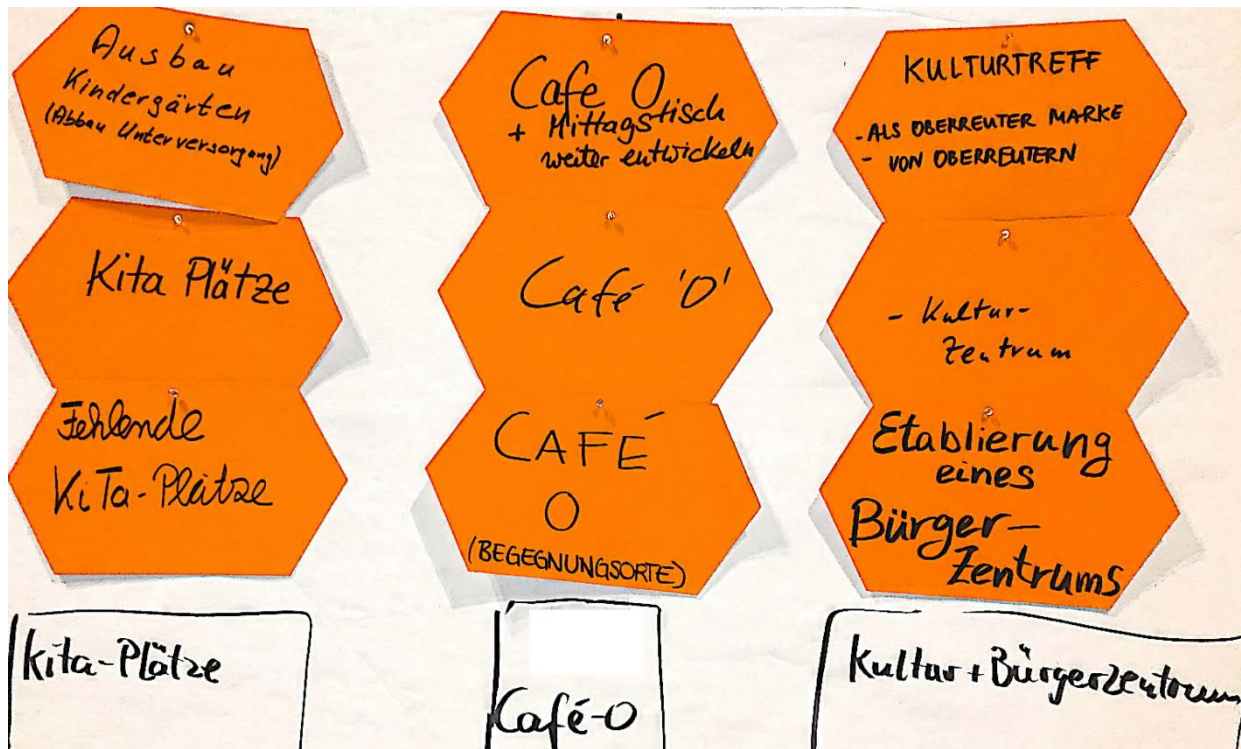 Ausbau
Kindergärten
(Abbau Unterversorgung)
Kita Plätze
Fehlende
KiTa-Plätze
Kita-Plätze
Cafe O
+ Mittagstisch
weiter entwickeln
Café 'O'
CAFÉ
O
(BEGEGNUNGSORTE)
Café-O
KULTURTREFF
- ALS OBERREUTER MARKE
- VON OBERREUTERN
- Kultur-
Zentrum
Etablierung
eines
Bürger-
Zentrums
Kultur + Bürgerzentrum